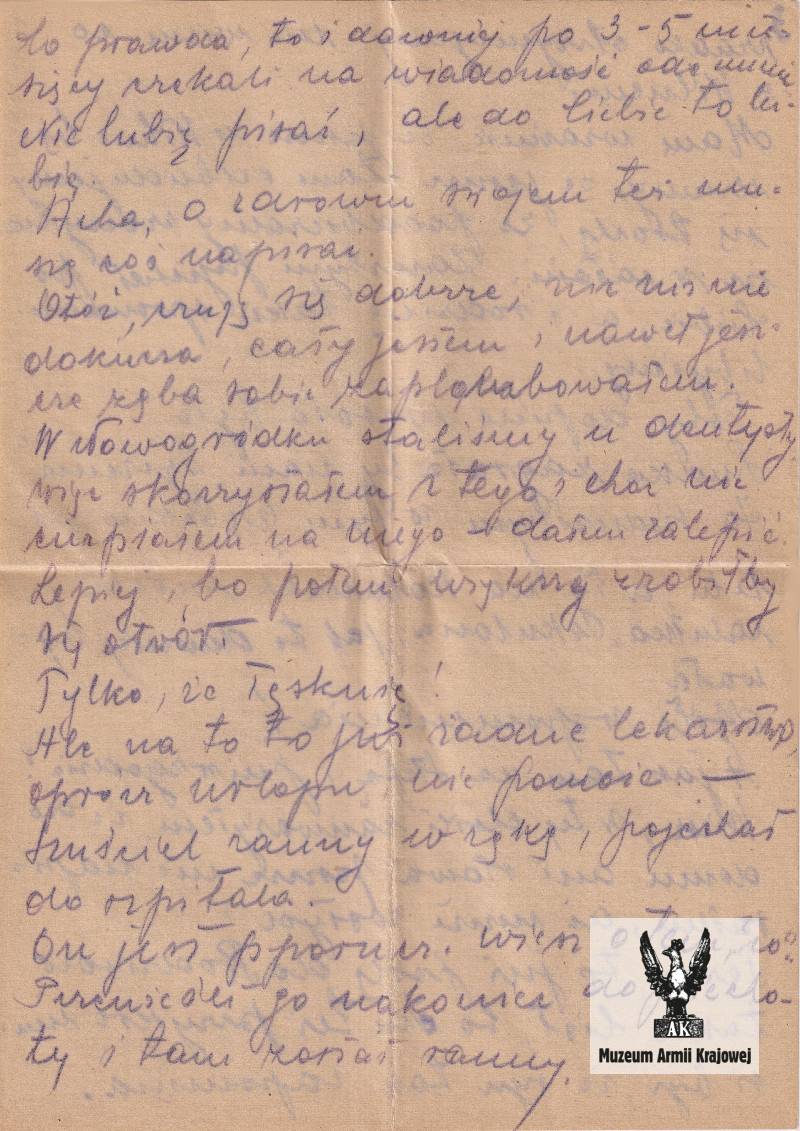 Co prawda, to i dawniej po 3-5 mie-
sięcy czekali na wiadomość ode mnie
Nie lubię pisać, ale do Ciebie to lu-
bię.
Acha, o zdrowiu swojem też mu-
szę coś napisać.
Otóż, czuję się dobrze, nic mi nie
dokucza, cały jestem i nawet jesz-
cze zęba sobie zaplombowałem.
W Nowogródku staliśmy u dentysty
więc skorzystałem z tego i choć nie
cierpiałem na niego – dałem zalepić.
Lepiej, bo potem większy zrobiłby
się otwór.
Tylko, że Tęsknię!
Ale na to to już żadne lekarstwo,
oprócz urlopu nie pomoże. –
ranny w rękę, pojechał
do szpitala.
On jest pporucz. wiesz o tem, co?
Przenieśli go nakoniec do piecho-
ty i tam został ranny.
AK
Muzeum Armii Krajowej